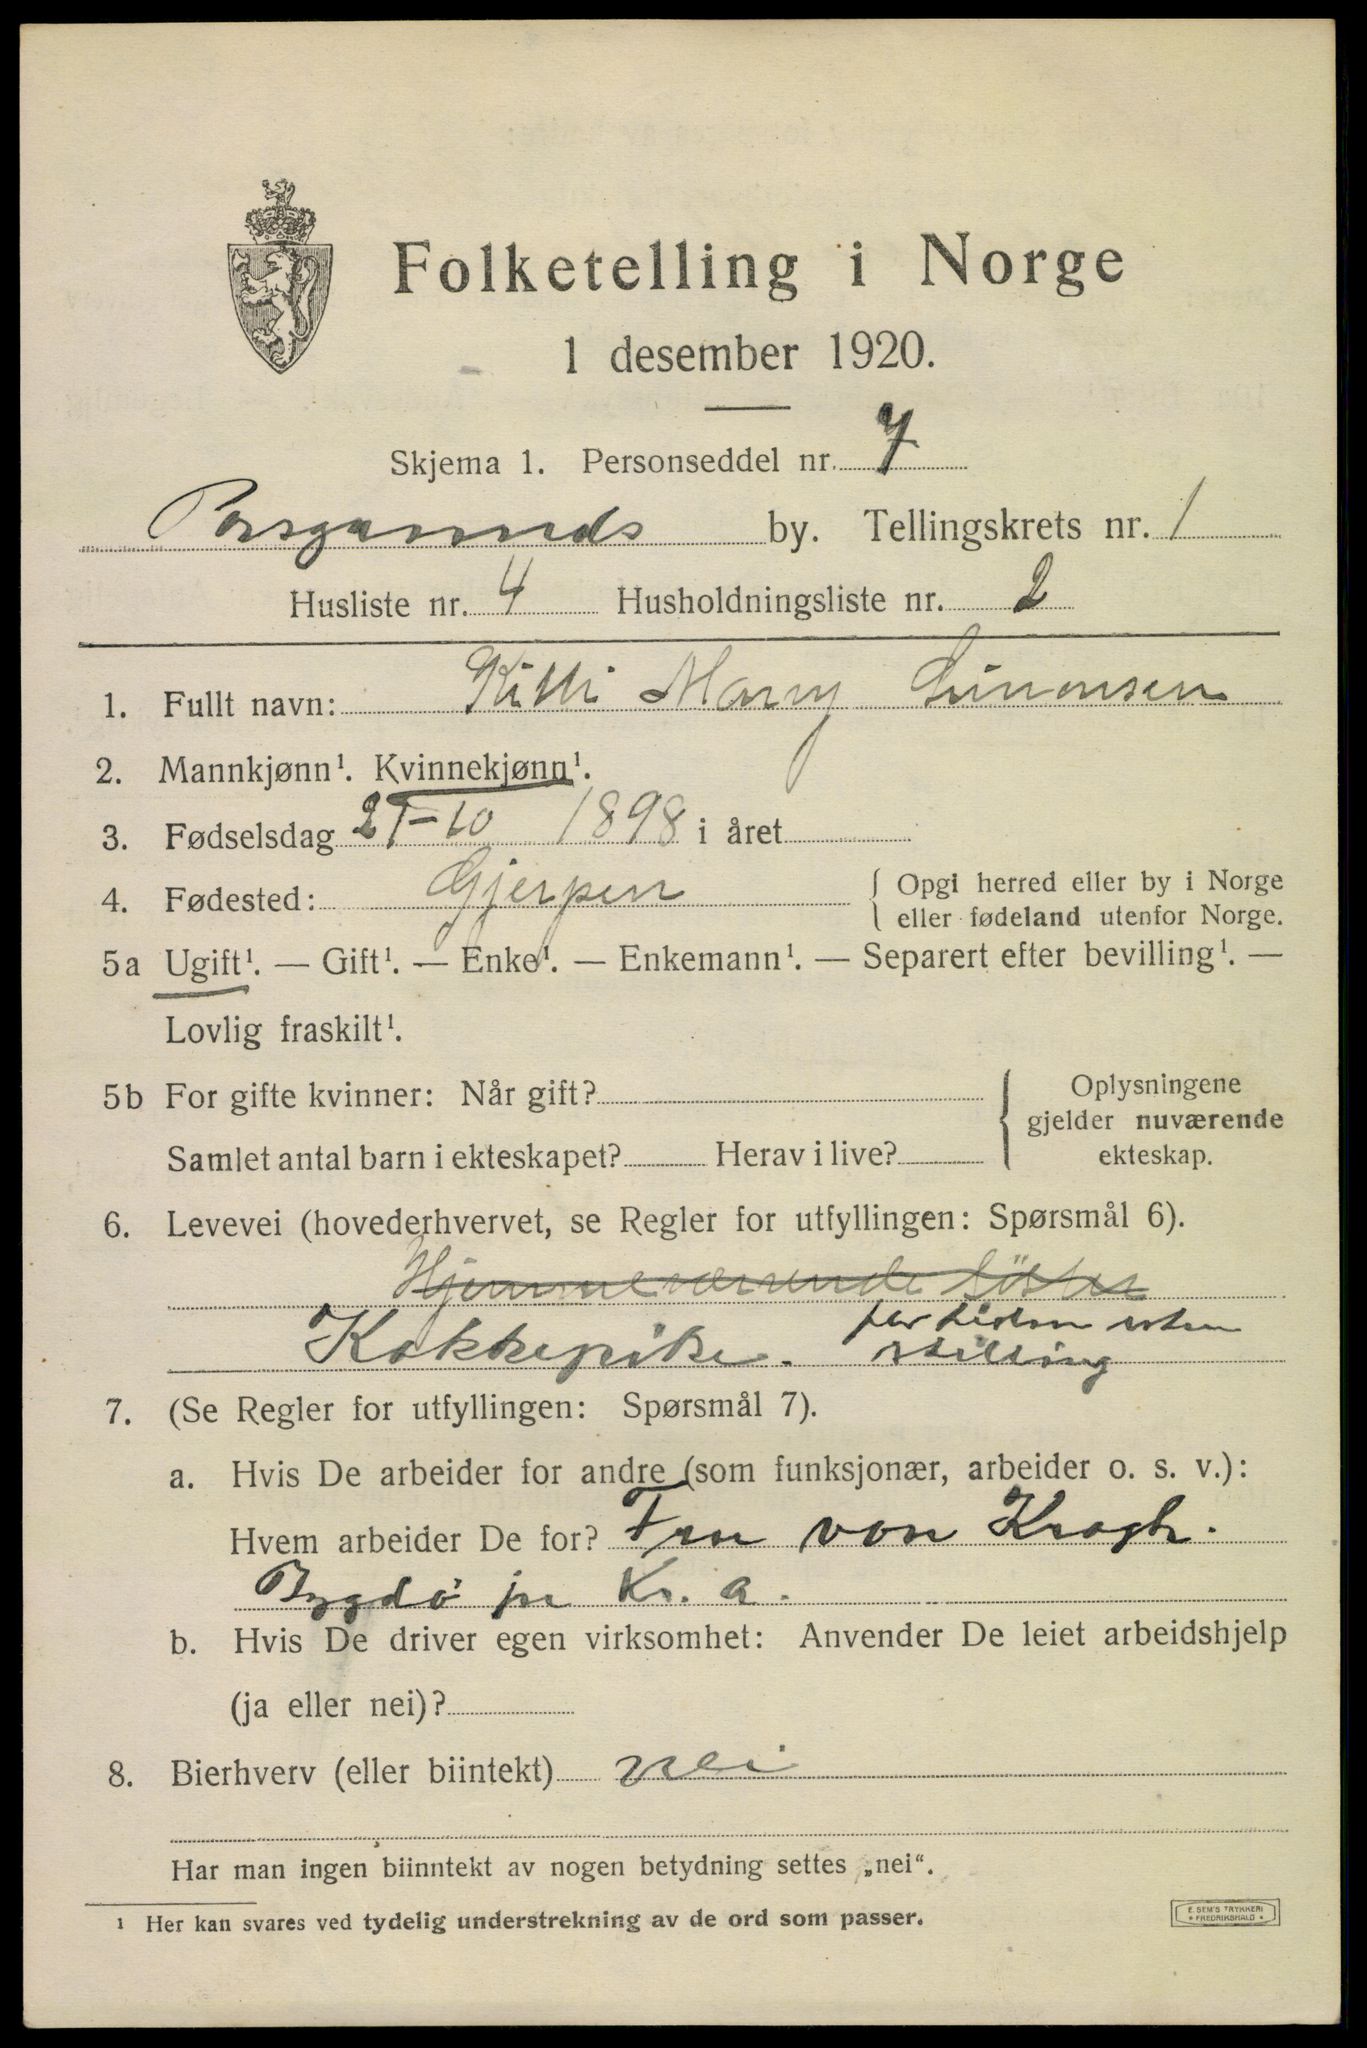 Folketelling i Norge
1 desember 1920.
Skjema 1. Personseddel nr. 7
Porsgrunds by. Tellingskrets nr. 1
Husliste nr. 4 Husholdningsliste nr. 2
1. Fullt navn: Killi Marry Simonsen
2. Mannkjønn¹. Kvinnekjønn¹.
3. Fødselsdag 21-10 1898 i året
4. Fødested: Gjerpen { Opgi herred eller by i Norge
eller fødeland utenfor Norge.
5a Ugift¹. — Gift¹. — Enke¹. — Enkemann¹. — Separert efter bevilling¹. —
Lovlig fraskilt¹.
5b For gifte kvinner: Når gift? { Oplysningene
gjelder nuværende
Samlet antal barn i ekteskapet? Herav i live? ekteskap.
6. Levevei (hovederhvervet, se Regler for utfyllingen: Spørsmål 6).
Hjemmeværende
Kokkepike. for tiden uten
stilling
7. (Se Regler for utfyllingen: Spørsmål 7).
a. Hvis De arbeider for andre (som funksjonær, arbeider o. s. v.):
Hvem arbeider De for? Fru von Krogh.
Bygdö pr Kr. a.
b. Hvis De driver egen virksomhet: Anvender De leiet arbeidshjelp
(ja eller nei)?
8. Bierhverv (eller biintekt) nei
Har man ingen biinntekt av nogen betydning settes „nei“.
¹ Her kan svares ved tydelig understrekning av de ord som passer.
E. SEM'S TRYKKERI
* FREDRIKSHALD *